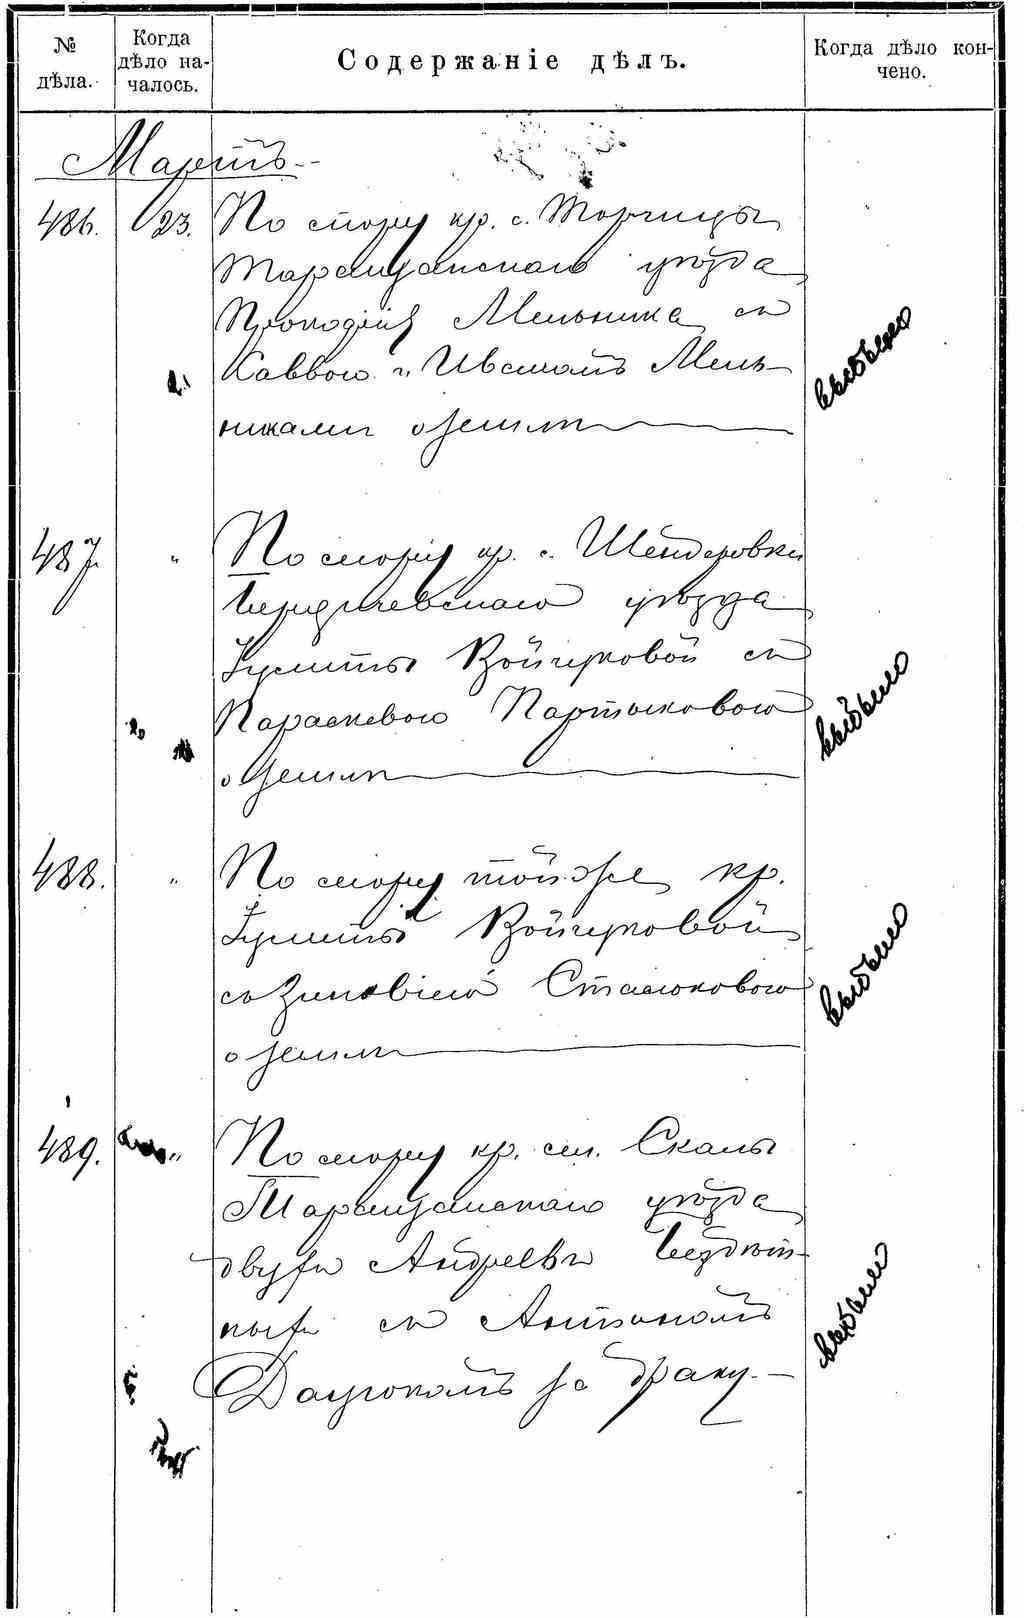 № дѣла.
Когда дѣло на-
чалось.
Содержаніе дѣлъ.
Когда дѣло кон-
чено.
Мартъ
486. 23. По спору кр. с. Торчицы
Таращанскаго уѣзда
Прокофія Мельника съ
Саввою и Иваномъ Мель-
никами о землѣ
выбыло
487. " По спору кр. с. Шендеровки
Бердичевскаго уѣзда
Улиты Войчуковой съ
Параскевою
о землѣ
выбыло
488. " По спору той же кр.
Улиты Войчуковой
съ Зиновіею Стасюковою
о землѣ
выбыло
489. " По спору кр. сел. Скалы
Таращанскаго уѣзда
двухъ Андреевъ
съ Антономъ
за драку.
выбыло